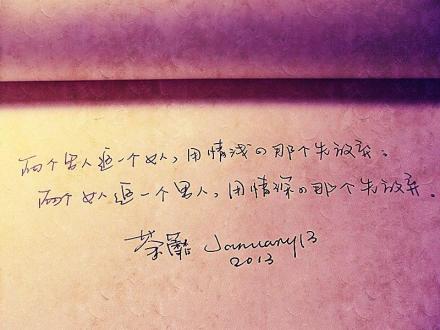 两个男人追一个女人，用情浅的那个先放弃。
两个女人追一个男人，用情深的那个先放弃。
荼靡 January 13
2013